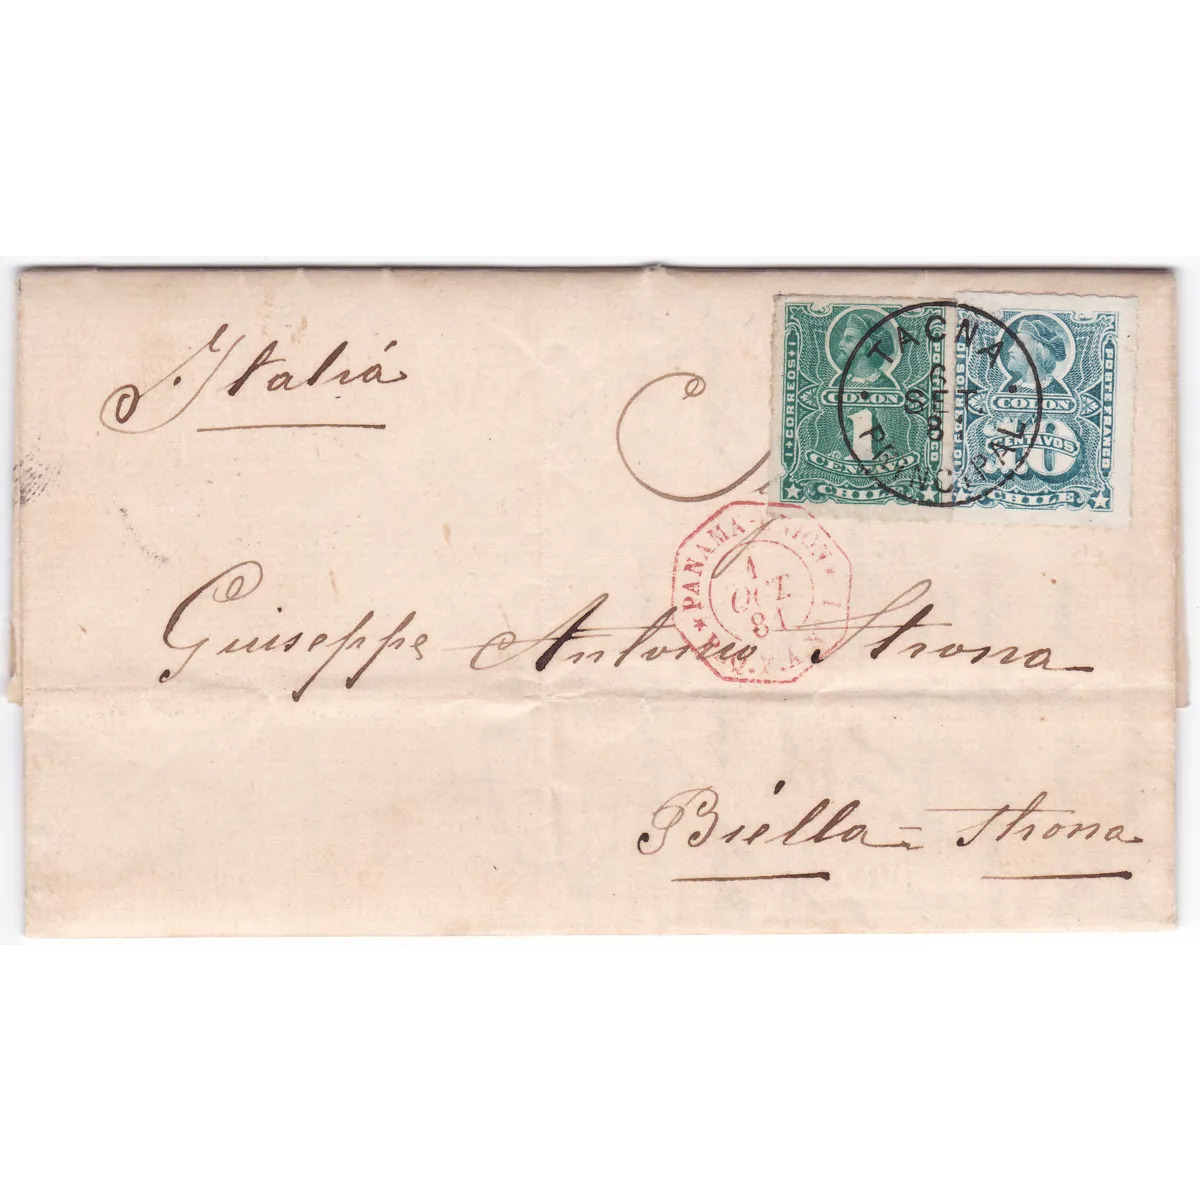 Italiá
CORREOS 1
COLON
1
CENTAVO
CHILE
PORTE FRANCO
COLON
10
CENTAVOS
CHILE
TACNA
6
SET
8
PRINCIPAL
PANAMA
1
OCT
81
Giuseppe Antonio Strona
Biella = Strona